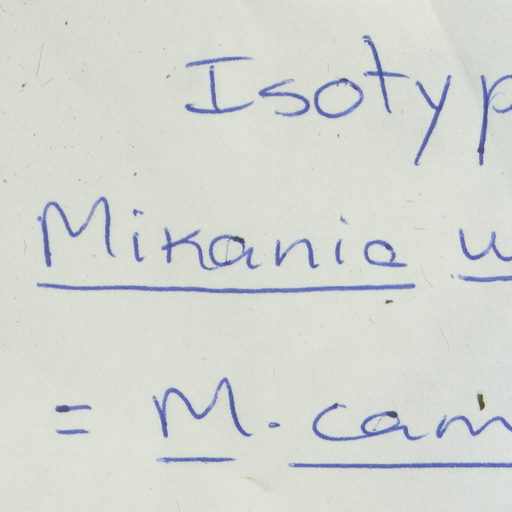 Isotyp
Mikania w
= M. cam